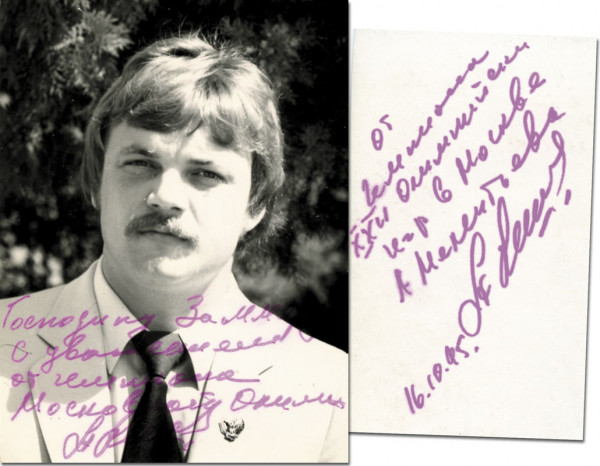 Господину Замм
с
от чемпиона
Московской Олимп
от
чемпиона
XXII Олимпийских
игр в Москве
А Мелентьева
16.10.95.